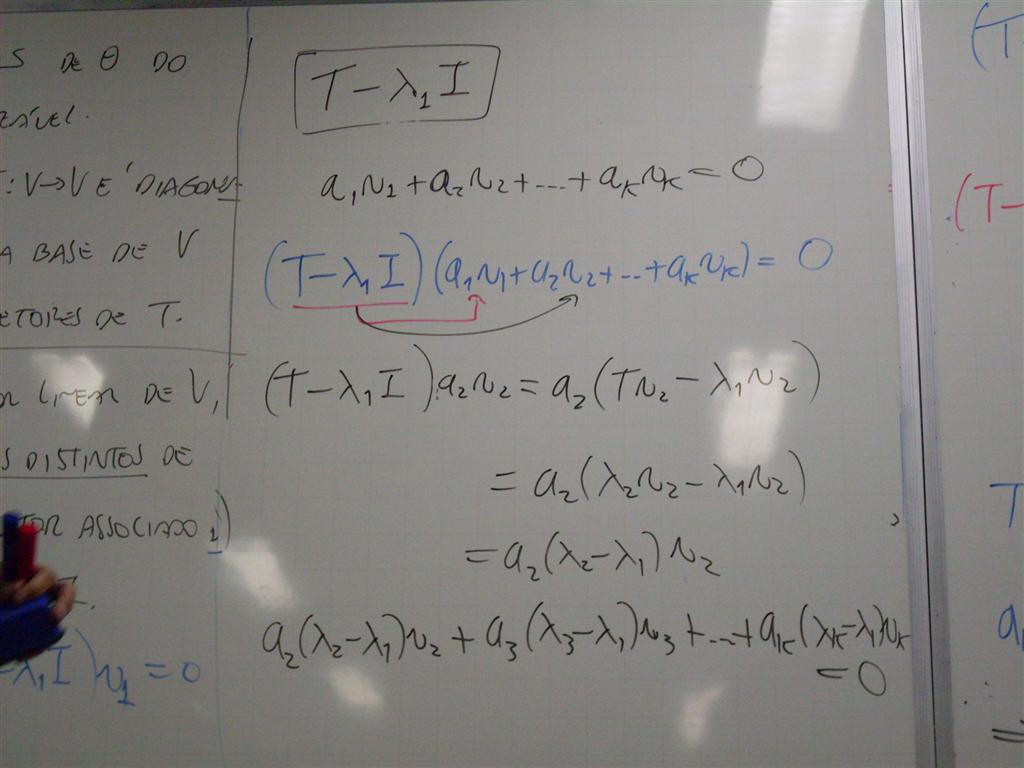 S DE θ DO
ZÁVEL.
T: V→V É DIAGONA-
A BASE DE V
ETORES DE T.
LINEAR DE V,
S DISTINTOS DE
TOR ASSOCIADO 1)
λ₁I)v₁ = 0
T − λ₁ I
a₁v₁ + a₂v₂ + ... + aₖvₖ = 0
(T − λ₁ I)(a₁v₁ + a₂v₂ + ... + aₖvₖ) = 0
(T − λ₁ I) a₂v₂ = a₂(Tv₂ − λ₁v₂)
= a₂(λ₂v₂ − λ₁v₂)
= a₂(λ₂ − λ₁)v₂
a₂(λ₂ − λ₁)v₂ + a₃(λ₃ − λ₁)v₃ + ... + aₖ(λₖ − λ₁)vₖ
= 0
(T
(T −
T